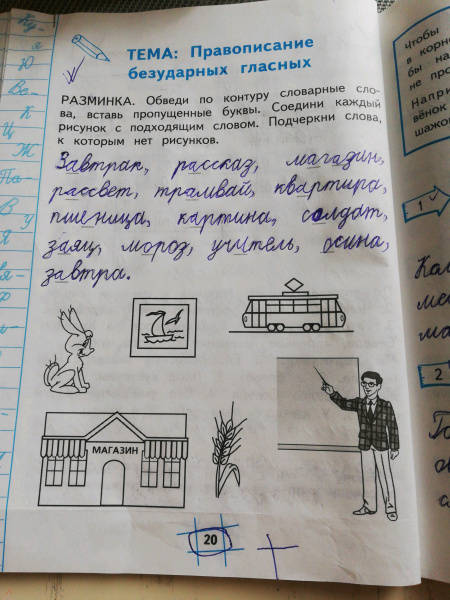 ТЕМА: Правописание
безударных гласных
РАЗМИНКА. Обведи по контуру словарные сло-
ва, вставь пропущенные буквы. Соедини каждый
рисунок с подходящим словом. Подчеркни слова,
к которым нет рисунков.
Завтрак, рассказ, магазин,
рассвет, трамвай, квартира,
пшеница, картина, солдат,
заяц, мороз, учитель, осина,
завтра.
МАГАЗИН
20
Чтобы
в корн
бы на
не про
Напри
вёнок
шажо
1
2